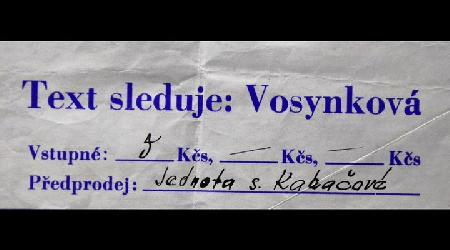 Text sleduje: Vosynková
Vstupné: 5 Kčs, — Kčs, — Kčs
Předprodej: Jednota s. Kabačová